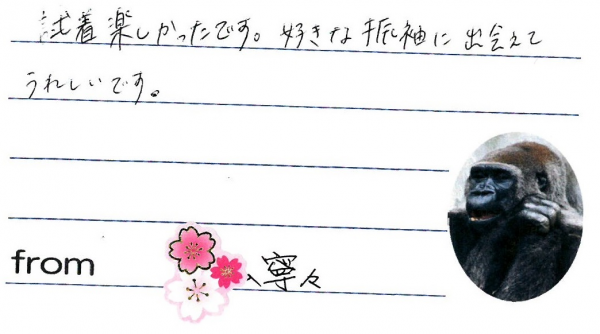 試着楽しかったです。好きな振袖に出会えて
うれしいです。
from 寧々